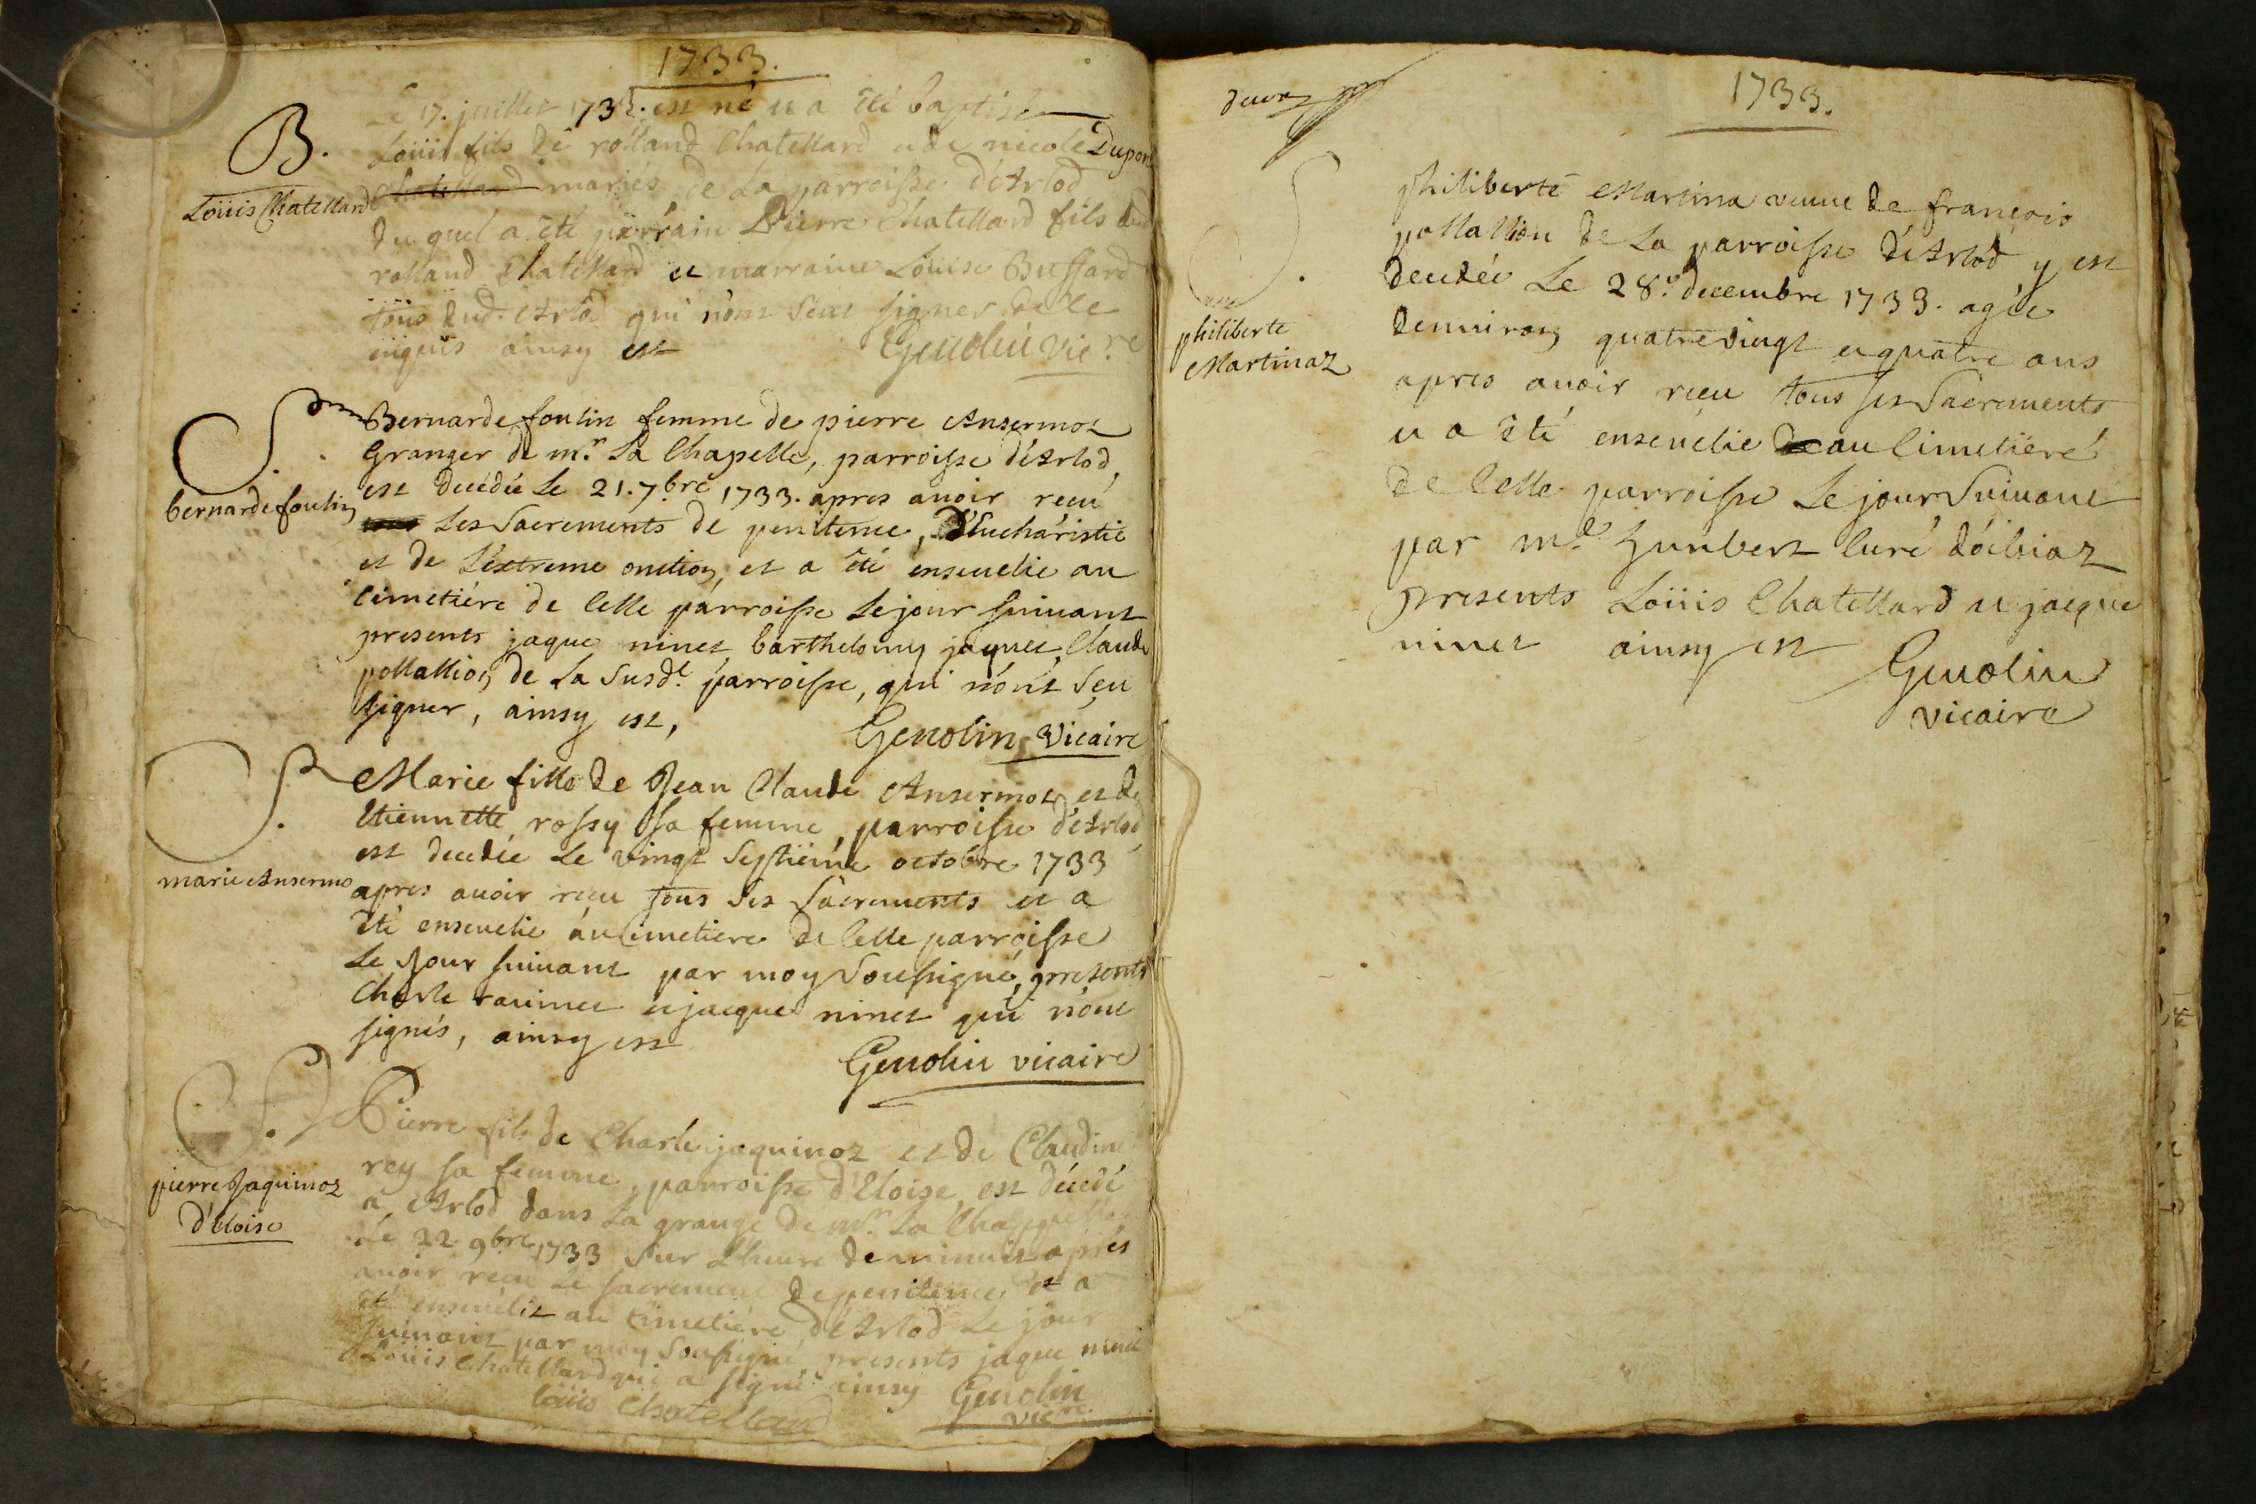 1733.
Le 17. juillet 1733. est né et a été baptisé
B.
Loüis Chatellard
Loüis fils de rolland Chatellard et de nicole Dupont
mariés de La parroisse d'Arlod
du quel a été parrain Pierre Chatellard fils dud
rolland Chatellard et marraine Loüise Buffard
tous dud. Arlod qui n'ont sçeu signer de ce
enquis ainsy est Genolin vic.re
S.
bernarde foulin
Bernarde foulin femme de pierre Ansermoz
Granger de mr. La Chapelle, parroisse d'Arlod,
est decédée Le 21. 7.bre 1733. apres avoir reçu
Les Sacrements de penitence, d'Eucharistie
et de L'extreme onction, et a été ensevelie au
cimetiére de Cette parroisse Le jour suivant
presents jaque ninet barthelemy jaquet, Claude
pollallion de La susd.e parroisse, qui n'ont sçeu
signer, ainsy est, Genolin Vicaire
S.
marie Ansermo
Marie fille de Jean Claude Ansermoz et de
Etiennette rossy sa femme, parroisse d'Arlod
est decedée Le vingt septiéme octobre 1733
apres avoir reçu tous ses Sacrements et a
été ensevelie au cimetiere de Cette parroisse
Le Jour suivant par moy Soussigné, presents
Charle ravinet et jacque ninet qui n'ont
signés, ainsy est
Genolin vicaire
S.
pierre Jaquinoz
d'Eloise
Pierre fils de Charle jaquinoz et de Claudine
rey sa femme, parroisse d'Eloise, est décedé
a Arlod dans La grange de mr. La Chappelle
Le 22. 9.bre 1733 sur L'heure de minuit aprés
avoir reçu Le sacrement de penitence et a
été ensevelit au Cimetiére d'Arlod Le jour
suivant par moy Soussigné, presents jaque ninet
Loüis Chatellard qui a signé ainsy Genolin
loüis Chatelland vic.re
1733.
S.
philiberte
Martinaz
philiberte Martina veuve de françois
pollallion de La parroisse d'Arlod y est
decedée Le 28.e decembre 1733. agée
d'environ quatre vingt et quatre ans
apres avoir reçu tous ses Sacrements
et a été ensevelie au Cimetiere
de Cette parroisse Le jour Suivant
par m.e humbert Curé d'ochiaz
presents Loüis Chatellard et jacque
ninet ainsy est
Genolin
vicaire